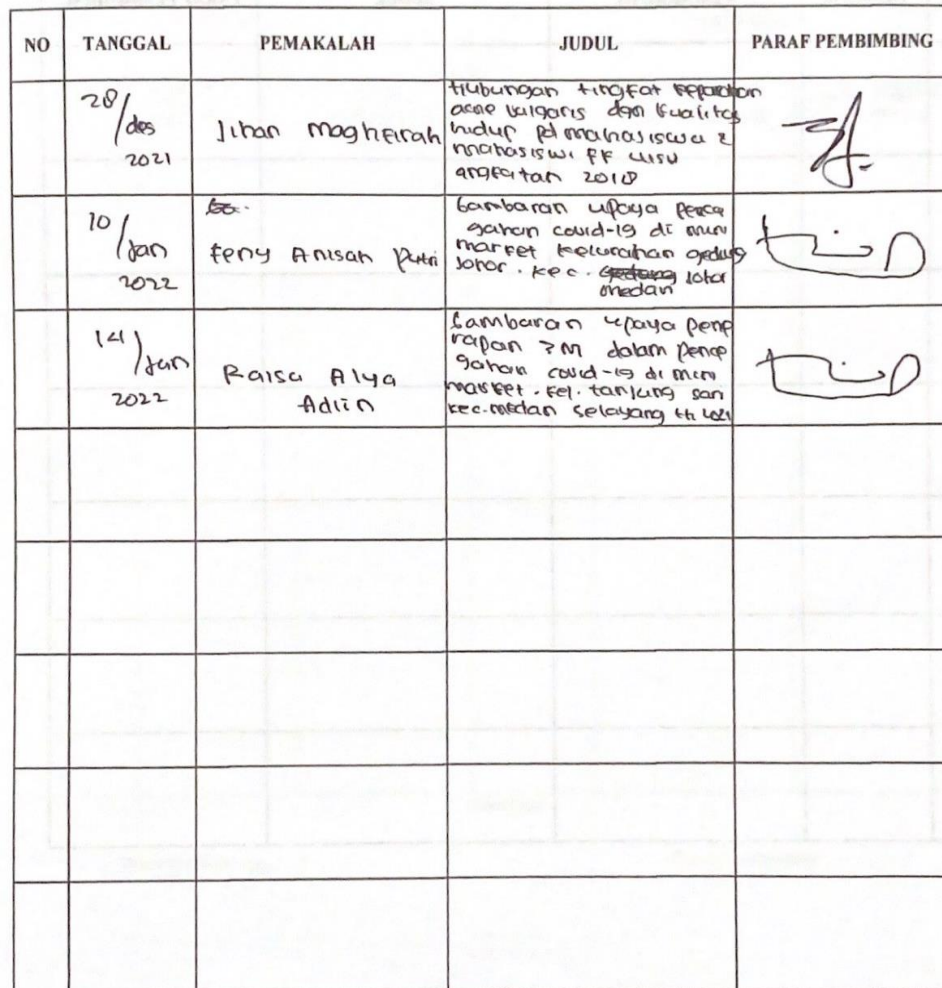 NO TANGGAL PEMAKALAH JUDUL PARAF PEMBIMBING
28/des
2021
Jihan Maghfirah
Hubungan tingkat keparahan
acne vulgaris dan kualitas
hidup pd mahasiswa &
mahasiswi FK UISU
angkatan 2018
10/Jan
2022
Feny Anisah Putri
Gambaran upaya pence
gahan covid-19 di mini
market kelurahan gedung
johor. kec.
medan
14/Jan
2022
Raisa Alya
Adlin
Gambaran upaya pene
rapan 3M dalam pence
gahan covid-19 di mini
market. kel. tanjung sari
kec. medan selayang th 2021